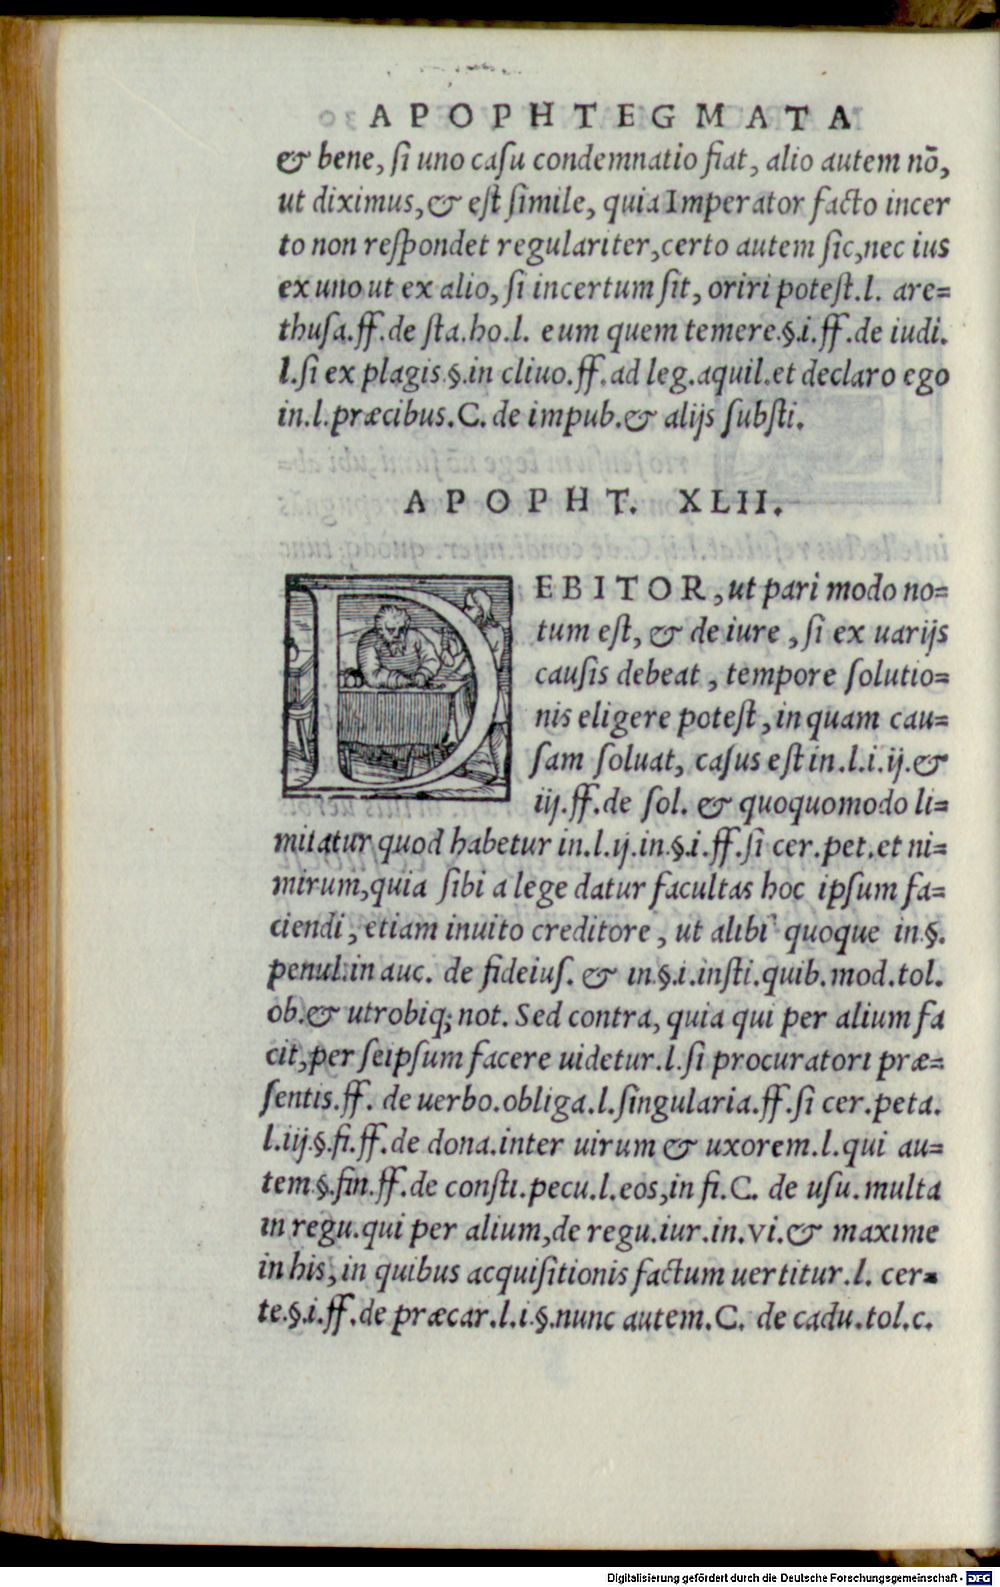 APOPHTEGMATA
& bene, si uno casu condemnatio fiat, alio autem nō,
ut diximus, & est simile, quia Imperator facto incer
to non respondet regulariter, certo autem sic, nec ius
ex uno ut ex alio, si incertum sit, oriri potest. l. are=
thusa. ff. de sta. ho. l. eum quem temere. §. i. ff. de iudi.
l. si ex plagis. §. in cliuo. ff. ad leg. aquil. et declaro ego
in. l. præcibus. C. de impub. & alijs substi.
APOPHT. XLII.
DEBITOR, ut pari modo no=
tum est, & de iure, si ex uarijs
causis debeat, tempore solutio=
nis eligere potest, in quam cau=
sam soluat, casus est in. l. i. ij. &
iij. ff. de sol. & quoquomodo li=
mitatur quod habetur in. l. ij. in. §. i. ff. si cer. pet. et ni=
mirum, quia sibi a lege datur facultas hoc ipsum fa=
ciendi, etiam inuito creditore, ut alibi quoque in. §.
penul. in auc. de fideius. & in. §. i. insti. quib. mod. tol.
ob. & utrobiq; not. Sed contra, quia qui per alium fa
cit, per seipsum facere uidetur. l. si procuratori præ=
sentis. ff. de uerbo. obliga. l. singularia. ff. si cer. peta.
l. iij. §. fi. ff. de dona. inter uirum & uxorem. l. qui au=
tem. §. fin. ff. de consti. pecu. l. eos, in fi. C. de usu. multa
in regu. qui per alium, de regu. iur. in. vi. & maxime
in his, in quibus acquisitionis factum uertitur. l. cer=
te. §. i. ff. de præcar. l. i. §. nunc autem. C. de cadu. tol. c.
Digitalisierung gefördert durch die Deutsche Forschungsgemeinschaft - DFG